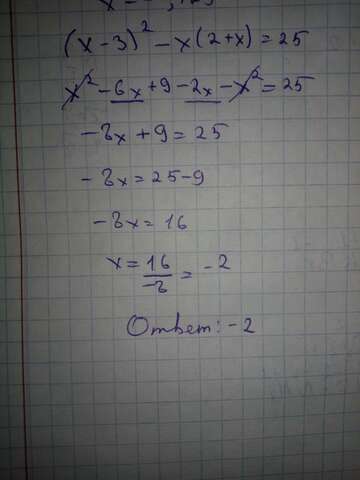 (x-3)² - x(2+x) = 25
x² - 6x + 9 - 2x - x² = 25
-8x + 9 = 25
-8x = 25-9
-8x = 16
x = 16/-8 = -2
Ответ: -2